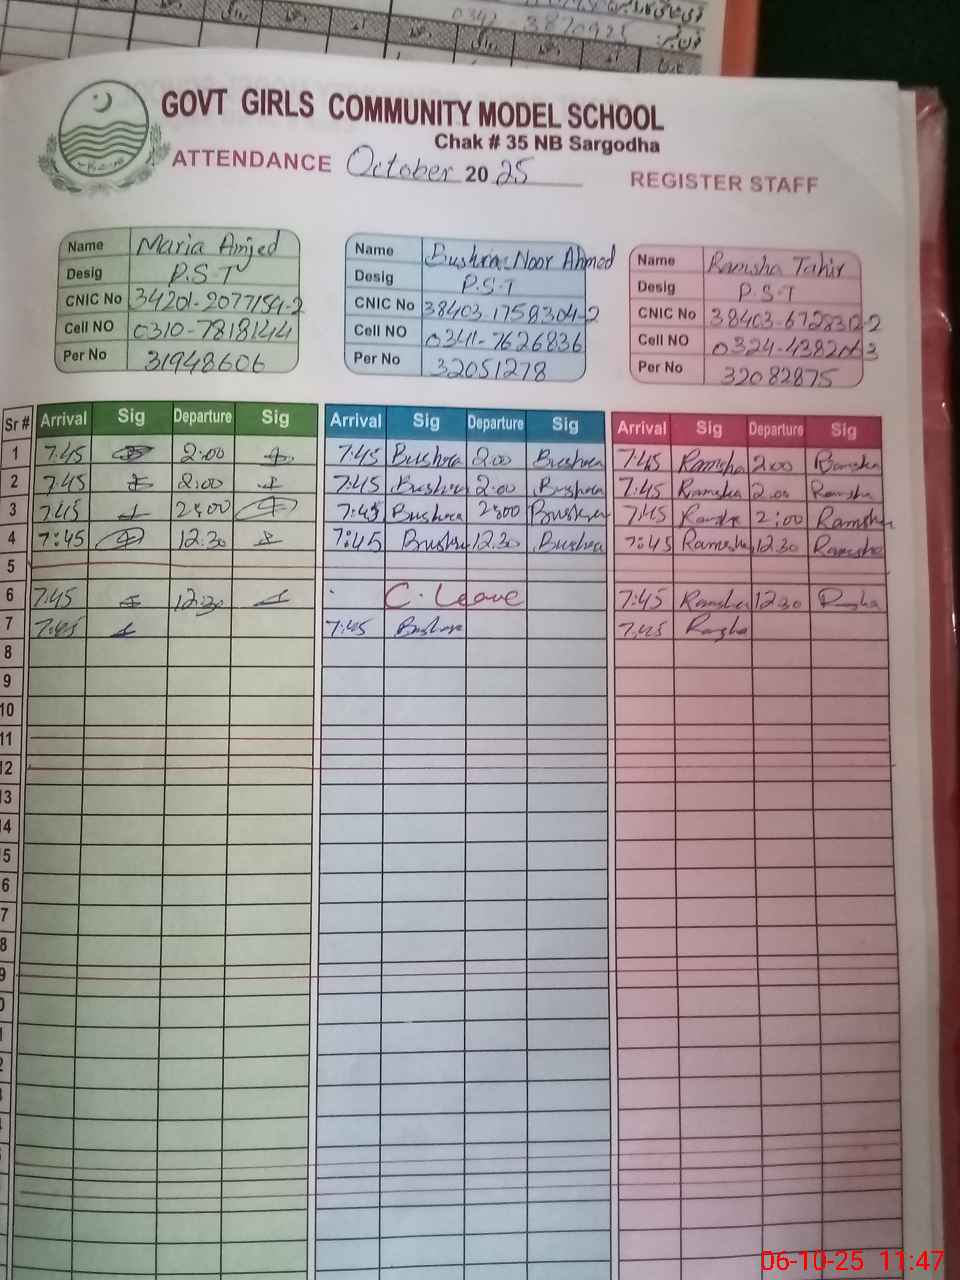 0342 3870925
فون نمبر:
GOVT GIRLS COMMUNITY MODEL SCHOOL
Chak # 35 NB Sargodha
ATTENDANCE October 20 25 REGISTER STAFF
Name Maria Amjed
Desig P.S.T
CNIC No 34201-2077154-2
Cell NO 0310-7818144
Per No 31948606
Name Bushra Noor Ahmed
Desig P.S.T
CNIC No 38403-1758304-2
Cell NO 0341-7626836
Per No 32051278
Name Ramsha Tahir
Desig P.S.T
CNIC No
Cell NO
Per No 32082875
Sr # Arrival Sig Departure Sig Arrival Sig Departure Sig Arrival Sig Departure Sig
1 7:45 2:00 7:45 Bushra 2:00 Bushra 7:45 Ramsha 2:00 Ramsha
2 7:45 2:00 7:45 Bushra 2:00 Bushra 7:45 Ramsha 2:00 Ramsha
3 7:45 2:00 7:45 Bushra 2:00 Bushra 7:45 Ramsha 2:00 Ramsha
4 7:45 12.30 7:45 Bushra 12.30 Bushra 7:45 Ramsha 12.30 Ramsha
5
6 7:45 12.30 C. Leave 7:45 Ramsha 12.30 Ramsha
7 7:45 7:45 Bushra 7:45 Ramsha
8
9
10
11
12
13
14
5
6
7
8
9
06-10-25 11:47